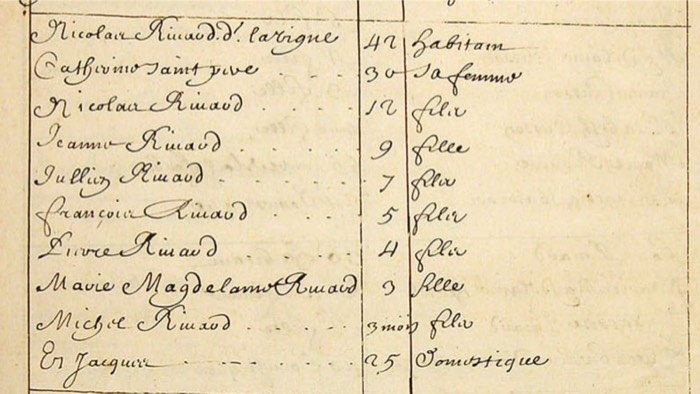 Nicolas Rivard d.t lavigne 42 habitant
Catherine saint pere 30 sa femme
Nicolas Rivard 12 filz
Jeanne Rivard 9 fille
Jullien Rivard 7 filz
françois Rivard 5 filz
Pierre Rivard 4 filz
Marie Magdelaine Rivard 3 fille
Michel Rivard 3 mois filz
Et Jacques 25 Domestique